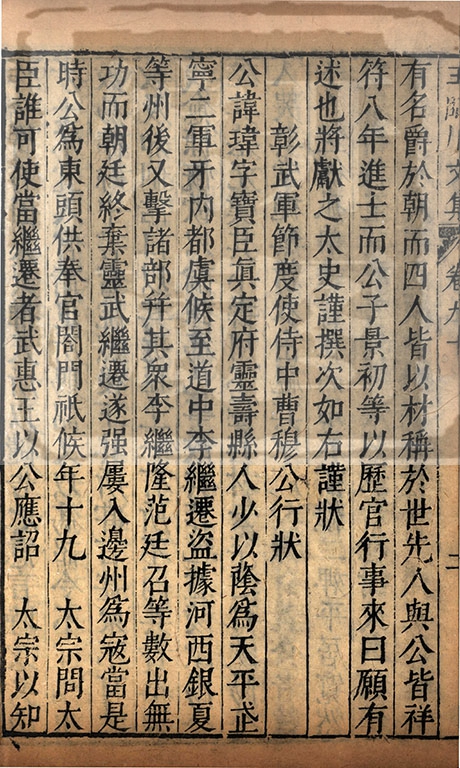 王臨川文集 卷九十 二
有名爵於朝而四人皆以材稱於世先人與公皆祥
符八年進士而公子景初等以歷官行事來曰願有
述也將獻之太史謹撰次如右謹狀
彰武軍節度使侍中曹穆公行狀
公諱瑋字寶臣眞定府靈壽縣人少以蔭爲天平武
寧二軍牙內都虞候至道中李繼遷盜據河西銀夏
等州後又擊諸部幷其衆李繼隆范廷召等數出無
功而朝廷終棄靈武繼遷遂强屢入邊州爲寇當是
時公爲東頭供奉官閤門祗候年十九 太宗問大
臣誰可使當繼遷者武惠王以公應詔 太宗以知